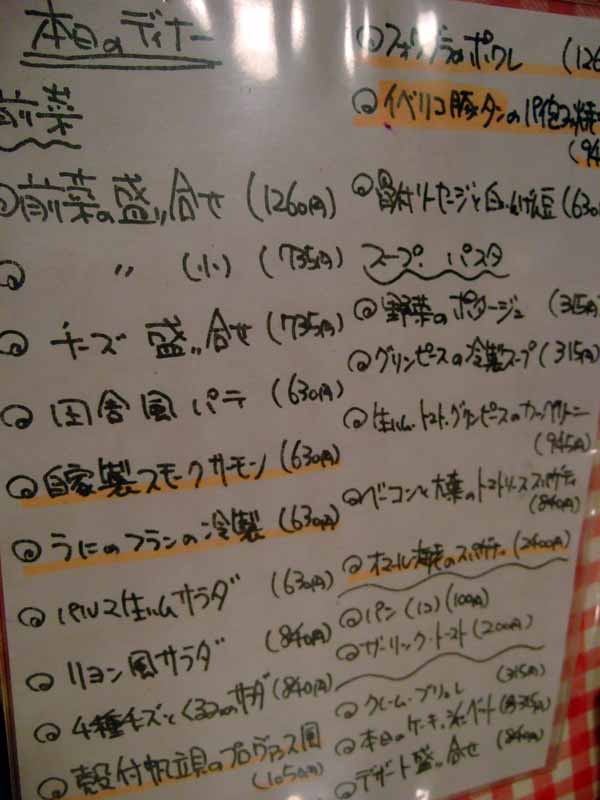 本日のディナー
前菜
前菜の盛り合せ (1260円)
〃 (小) (735円)
チーズ 盛り合せ (735円)
田舎風 パテ (630円)
自家製スモークサーモン (630円)
うにのフランの冷製 (630円)
パルマ生ハムサラダ (630円)
リヨン風サラダ (840円)
4種チーズとくるみのサラダ (840円)
殻付帆立貝のプロヴァンス風
(1050円)
フォワグラのポワレ (126
イベリコ豚タンの
(94
ソーセージと白いんげん豆 (630
スープ. パスタ
野菜のポタージュ (315円)
グリンピースの冷製スープ (315円)
生ハム.トマト.グリンピースのカッペリーニ
(945円)
ベーコンと大葉のトマトソーススパゲティ
(840円)
オマール海老のスパゲティ (2400円)
パン (1コ) (100円)
ガーリック・トースト (200円)
クレーム・ブリュレ (315円)
本日のケーキ.シャーベット (各315円)
デザート盛り合せ (840円)